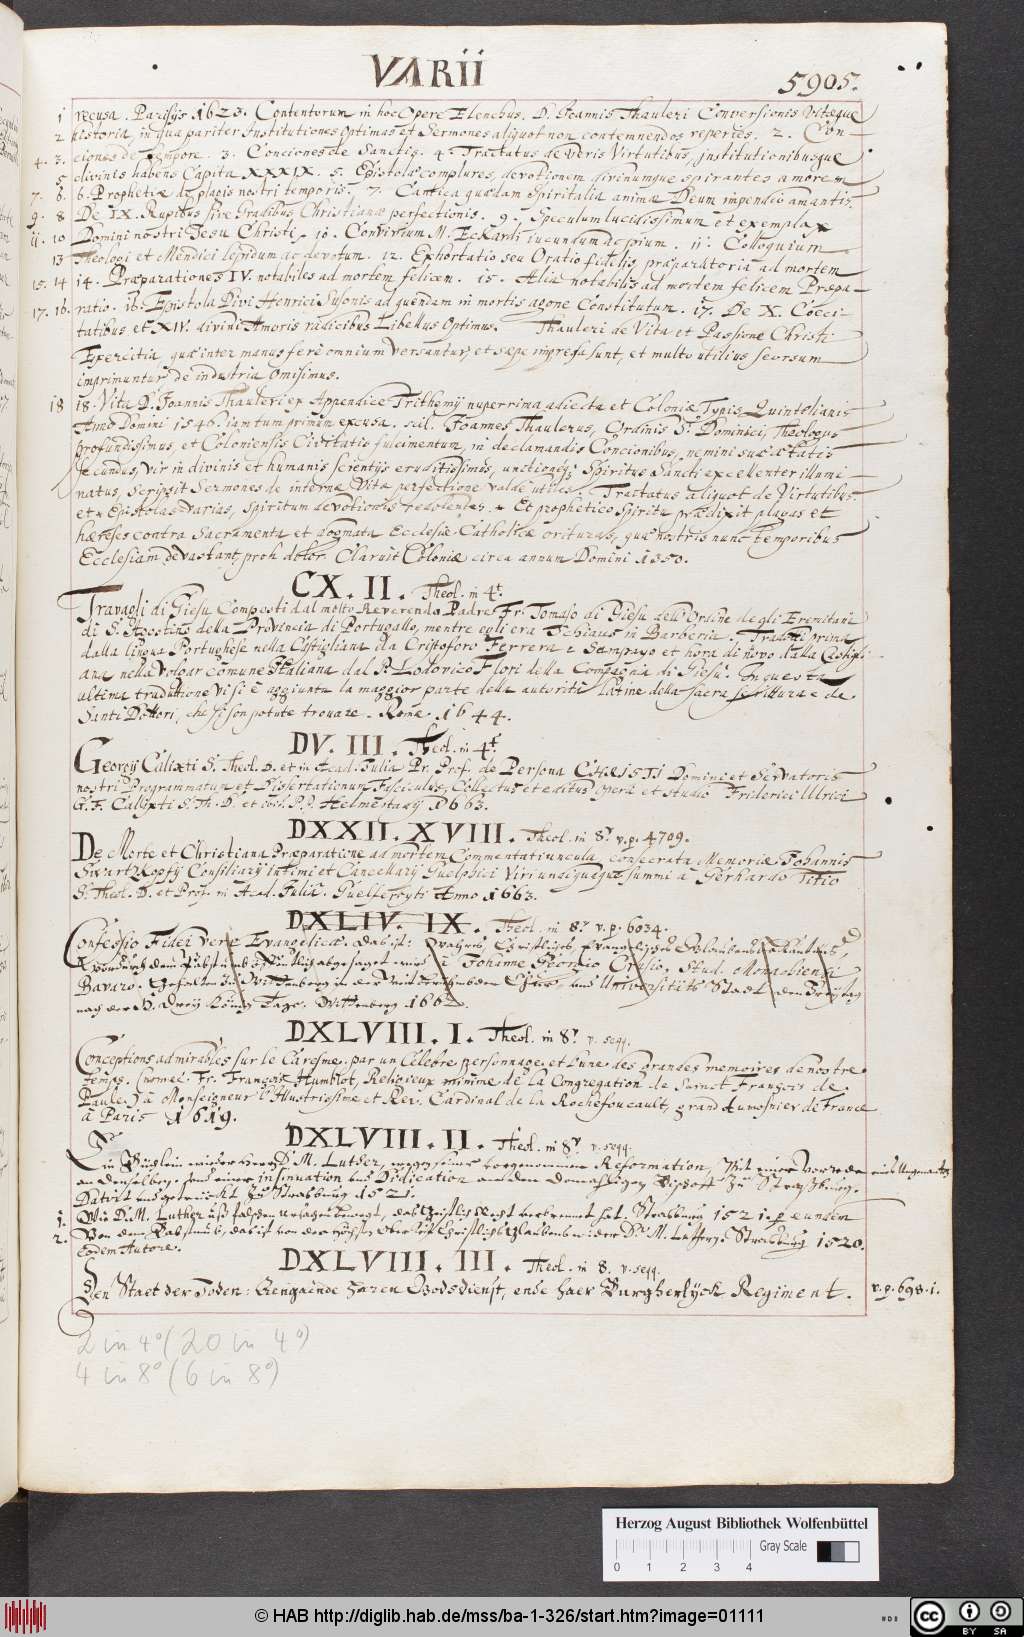 VARII
5905.
1 recusa. Parisijs 1623. Contentorum in hoc Opere Elenchus. D. Joannis Thauleri Conversionis vitæque
2 historia, in qua pariter Institutiones optimas et Sermones aliquot non contemnendos reperies. 2. Con-
4. 3. ciones de Tempore. 3. Conciones de Sanctis. 4. Tractatus de veris Virtutibus, institutionibusque
5 divinis habens Capita XXXIX. 5. Epistolæ complures, devotionem divinumque spirantes amorem
7. 6. 6. Prophetiæ de plagis nostri temporis. 7. Cantica quædam Spiritalia animæ Deum impendio amantis.
9. 8 De IX. Rupibus sive Gradibus Christianæ perfectionis. 9. Speculum lucidissimum et exemplar
11. 10 Domini nostri Jesu Christi. 10. Convivium M. Eckardi iucundum ac pium. 11. Colloquium
13 Theologi et Mendici lepidum ac devotum. 12. Exhortatio seu Oratio fidelis, præparatoria ad mortem
15. 14 14. Præparationes IV. notabiles ad mortem felicem. 15. Alia notabilis ad mortem felicem Præpa-
17. 16. ratio. 16. Epistola Divi Henrici Susonis ad quendam in mortis agone Constitutum. 17. De X. Cæci-
tatibus et XIV. divini Amoris radicibus Libellus Optimus. Thauleri de Vita et Passione Christi
Exercitia quæ inter manus ferè omnium versantur, et sæpe impressa sunt, et multo utilius seorsum
imprimuntur de industria omisimus.
18 18. Vita D. Joannis Thauleri ex Appendice Trithemij nuperrima adiecta et Coloniæ Typis Quintelianis
Anno Domini 1546. iam tum primum excusa. scil. Joannes Thaulerus, Ordinis S. Dominici, Theologus
profundissimus, et Coloniensis Civitatis fulcimentum, in declamandis Concionibus, nemini suæ ætatis
secundus, vir in divinis et humanis scientijs eruditissimus, unctioneq; Spiritus Sancti excellenter illumi-
natus, scripsit Sermones de internæ Vitæ perfectione valde utiles. Tractatus aliquot de Virtutibus
et Epistolas varias, spiritum devotionis redolentes. Et prophetico Spiritu prædixit plagas et
hæreses contra Sacramenta et dogmata Ecclesiæ Catholicæ orituras, quæ nostris nunc temporibus
Ecclesiam devastant, proh dolor. Claruit Coloniæ circa annum Domini 1350.
CX. II. Theol. in 4t.
Travagli di Giesu Composti dal molto Reverendo Padre Fr. Tomaso di Giesu dell'Ordine degli Eremitani
di S. Agostino della Provincia di Portugallo, mentre egli era Schiavo in Barberia. Tradotti prima
dalla lingua Portughese nella Castigliana da Cristoforo Ferrera e Sampayo et hora di novo dalla Castigli-
ana nella Volgar comune Italiana dal P. Lodovico Flori della Compagnia di Giesu. In questa
ultima traduttione vi si è aggiunta la maggior parte della autorità latine della sacra scrittura e de
Santi Dottori, che si son potute trouare. Romæ. 1644.
DV. III. Theol. in 4t.
Georgij Calixti S. Theol. D. et in Acad. Julia Pr. Prof. de Persona CHRISTI Domini et Servatoris
nostri Programmatum et Dissertationum Fasciculus, Collectus et editus operâ et studio Friderici Ulrici
G. F. Calixti S. Th. D. et P. P. Helmestadij 1663.
DXXII. XVIII. Theol. in 8v. v.p. 4709.
De Morte et Christiana Præparatione ad mortem Commentatiuncula, consecrata Memoriæ Johannis
Swartzkopfij Consiliarij intimi et Cancellarij Guelphici Viri undiquaque summi à Gerhardo Titio
S. Theol. D. et Prof. in Acad. Julia. Guelferbyti Anno 1663.
DXLIV. IX. Theol. in 8v. v.p. 6034.
Confessio Fidei veræ Evangelicæ. das ist: Wahres, Christliches, Evangelisches Glaubens Bekantnis,
wordurch dem Pabstumb öffentlich abgesaget wird à Johanne Georgio Crusio, Stud. Monachiensi
Bavaro. Gehalten zu Wittenberg in der Universitäts Stadt den Freytag
nach der H. Dreij König Tage. Wittenberg 1662.
DXLVIII. I. Theol. in 8v. v. seqq.
Conceptions admirables sur le Caresme. par un Celebre personnage, et l'une des grandes memoires de nostre
temps. (nomé. Fr. François Humblot, Religieux minime de la Congregation de Sainct François de
Paule) à Monseigneur l'Illustrissime et Rev. Cardinal de la Rochefoucault, grand Aumosnier de France
à Paris 1619.
DXLVIII. II. Theol. in 8v. v. seqq.
Ein Büchlein wieder Herrn D. M. Luther, wegen seiner vorgenommenen Reformation, Mit einer Vorrede eines Ungenanten
an denselben. sambt einer insinuation und Dedication an den domahligen Bischoff zu Straßburg.
Datirt und gedruckt zu Straßburg 1521.
1. Wie D. M. Luther auß falschen ursachen bewegt, das Geistlich Recht verbrennet hat. Straßburg 1521. p. eundem
2. Von dem Pabstumb, das ist von der höchsten Oberkeit Christlichs Glaubens wieder D. M. Luther. Straßburg 1520.
Eodem Autore.
DXLVIII. III. Theol. in 8. v. seqq.
Den Staet der Joden: Aengaende haren Godsdienst, ende haer Burgherlijck Regiment. v.p. 698.1.
2 in 4° (20 in 4°)
4 in 8° (6 in 8°)
Herzog August Bibliothek Wolfenbüttel
Gray Scale
0 1 2 3 4
© HAB http://diglib.hab.de/mss/ba-1-326/start.htm?image=01111
cc BY SA